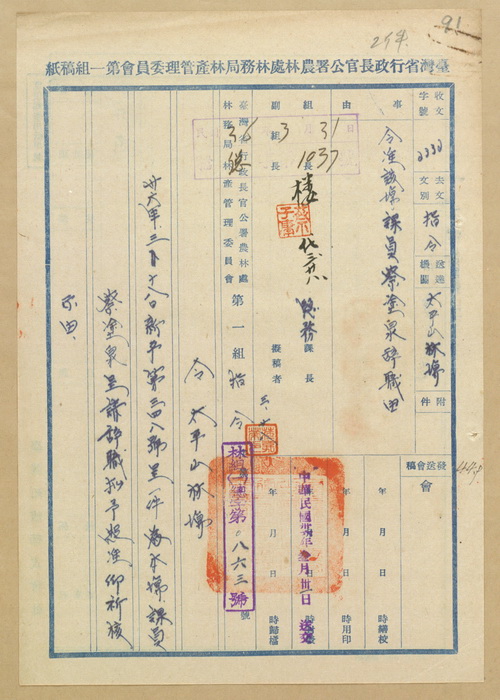 91
254
臺灣省行政長官公署農林處林務局林產管理委員會第一組稿紙
收文 字號
去文 文別 指令
送達機關 太平山林場
附件
事由
令准該場課員蔡塗泉辭職由
發送會稿
會
組長
副組長
課長
擬稿者
36 3 31
1037
年 月 日 時繕校
年 月 日 時用印
年 月 日 時歸檔
中華民國卅六年 月卅一日 送文
臺灣省行政長官公署農林處林務局林產管理委員會第一組指令
號
第〇八六三號
令 太平山林場
卅六年三月十八日新平第三四八號呈一件為本場課員
蔡塗泉呈請辭職擬予照准仰祈核
示由、